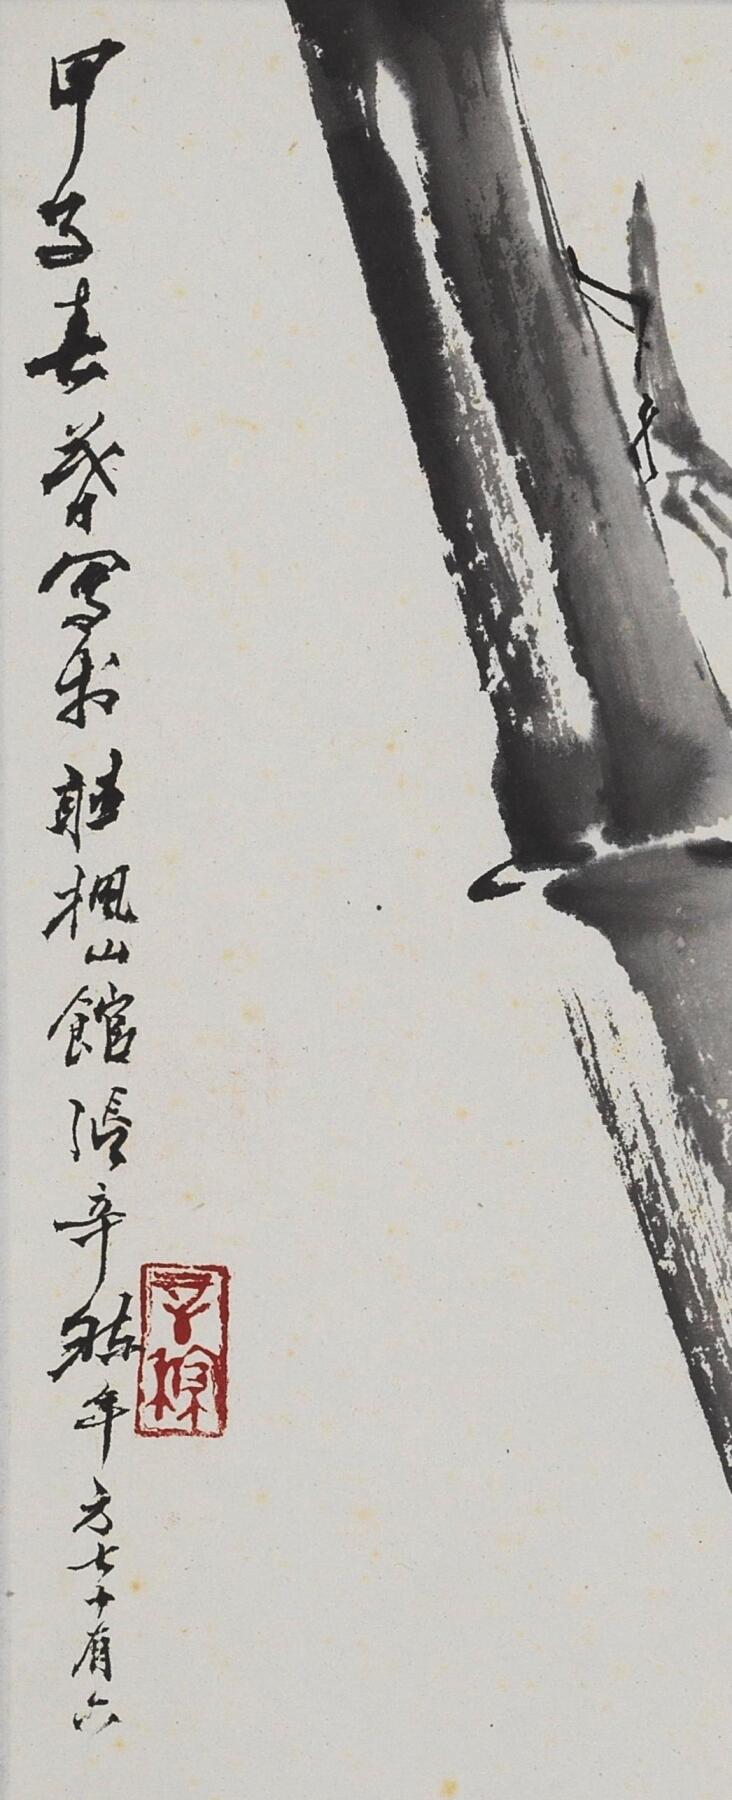 甲子春暮寫於聽楓山館張辛稼年方七十有六
辛稼